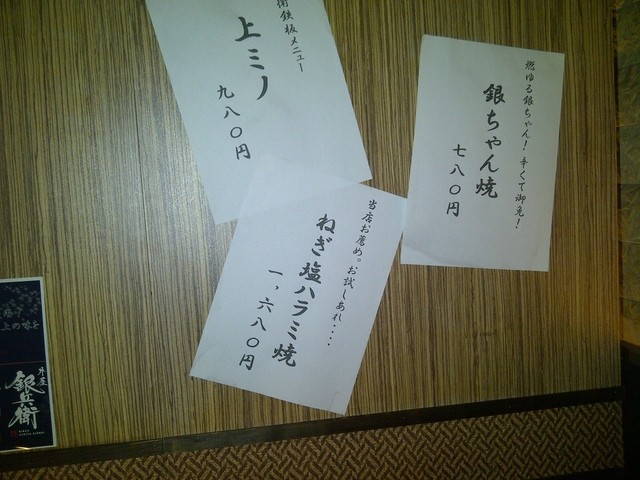 衛鉄板メニュー
上ミノ
九八〇円
燃ゆる銀ちゃん！辛くて御免！
銀ちゃん焼
七八〇円
当店お薦め。お試しあれ・・・・
ねぎ塩ハラミ焼
一，六八〇円
上の味を
銀兵衛